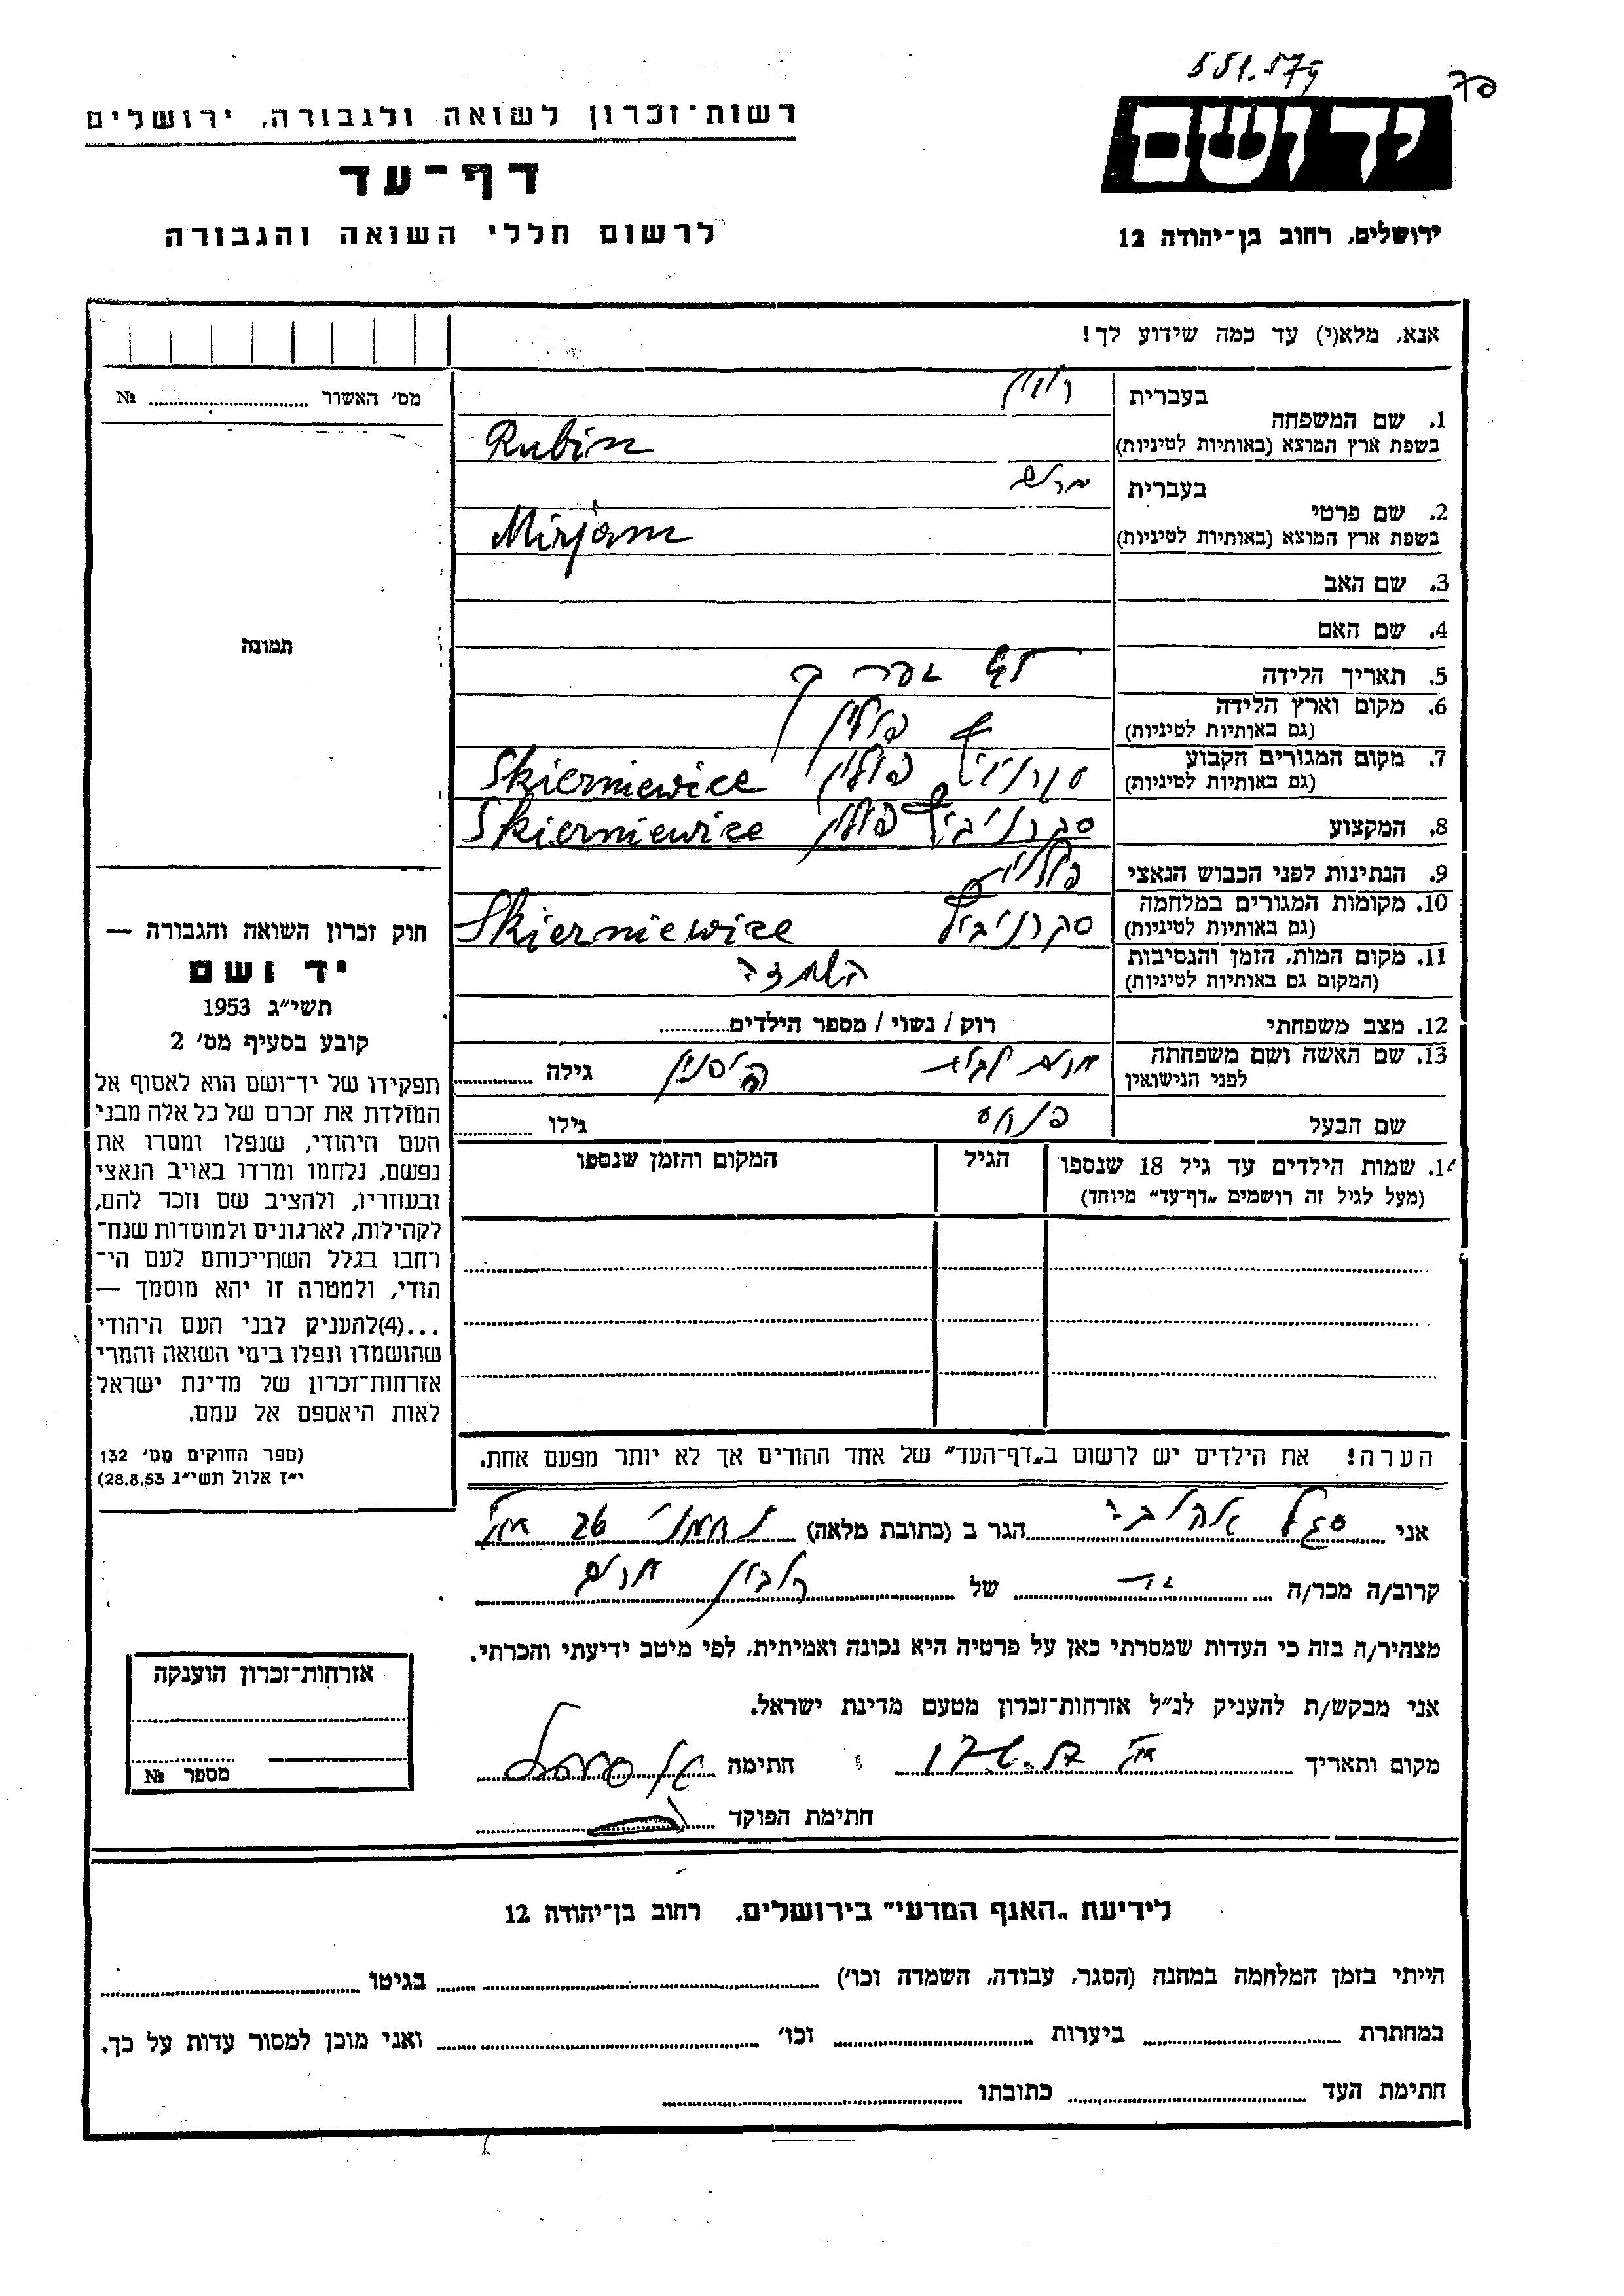 551.579
רשות־זכרון לשואה ולגבורה, ירושלים
יד ושם
דף־עד
לרשום חללי השואה והגבורה
ירושלים, רחוב בן־יהודה 12
אנא, מלא(י) עד כמה שידוע לך!
מס׳ האשור № ........
1. שם המשפחה
בעברית רובין
בשפת ארץ המוצא (באותיות לטיניות) Rubin
2. שם פרטי
בעברית מרים
בשפת ארץ המוצא (באותיות לטיניות) Mirjam
3. שם האב
4. שם האם
5. תאריך הלידה
6. מקום וארץ הלידה
(גם באותיות לטיניות) פולין
7. מקום המגורים הקבוע
(גם באותיות לטיניות) פולין Skierniewice
8. המקצוע פולין Skierniewice
9. הנתינות לפני הכבוש הנאצי
10. מקומות המגורים במלחמה
(גם באותיות לטיניות) Skierniewice
11. מקום המות, הזמן והנסיבות
(המקום גם באותיות לטיניות) השמדה
12. מצב משפחתי רוק / נשוי / מספר הילדים........
13. שם האשה ושם משפחתה
לפני הנישואין מרים לבית גילה ........
שם הבעל פנחס גילו ........
14. שמות הילדים עד גיל 18 שנספו
(מעל לגיל זה רושמים „דף־עד״ מיוחד)
הגיל
המקום והזמן שנספו
הערה! את הילדים יש לרשום ב„דף־העד״ של אחד ההורים אך לא יותר מפעם אחת.
תמונה
חוק זכרון השואה והגבורה —
יד ושם
תשי״ג 1953
קובע בסעיף מס׳ 2
תפקידו של יד־ושם הוא לאסוף אל
המולדת את זכרם של כל אלה מבני
העם היהודי, שנפלו ומסרו את
נפשם, נלחמו ומרדו באויב הנאצי
ובעוזריו, ולהציב שם וזכר להם,
לקהילות, לארגונים ולמוסדות שנח־
רחבו בגלל השתייכותם לעם הי־
הודי, ולמטרה זו יהא מוסמך —
...(4)להעניק לבני העם היהודי
שהושמדו ונפלו בימי השואה והמרי
אזרחות־זכרון של מדינת ישראל
לאות היאספם אל עמם.
(ספר החוקים מס׳ 132
י״ז אלול תשי״ג 28.8.53)
אני סגל הגר ב (כתובת מלאה) נחמני
קרוב/ה מכר/ה של רובין מרים
מצהיר/ה בזה כי העדות שמסרתי כאן על פרטיה היא נכונה ואמיתית, לפי מיטב ידיעתי והכרתי.
אני מבקש/ת להעניק לנ״ל אזרחות־זכרון מטעם מדינת ישראל.
מקום ותאריך ........ חתימה ........
חתימת הפוקד ........
אזרחות־זכרון הוענקה
מספר №
לידיעת „האגף המדעי״ בירושלים, רחוב בן־יהודה 12
הייתי בזמן המלחמה במחנה (הסגר, עבודה, השמדה וכו׳) ........ בגיטו ........
במחתרת ........ ביערות ........ וכו׳ ........ ואני מוכן למסור עדות על כך.
חתימת העד ........ כתובתו ........